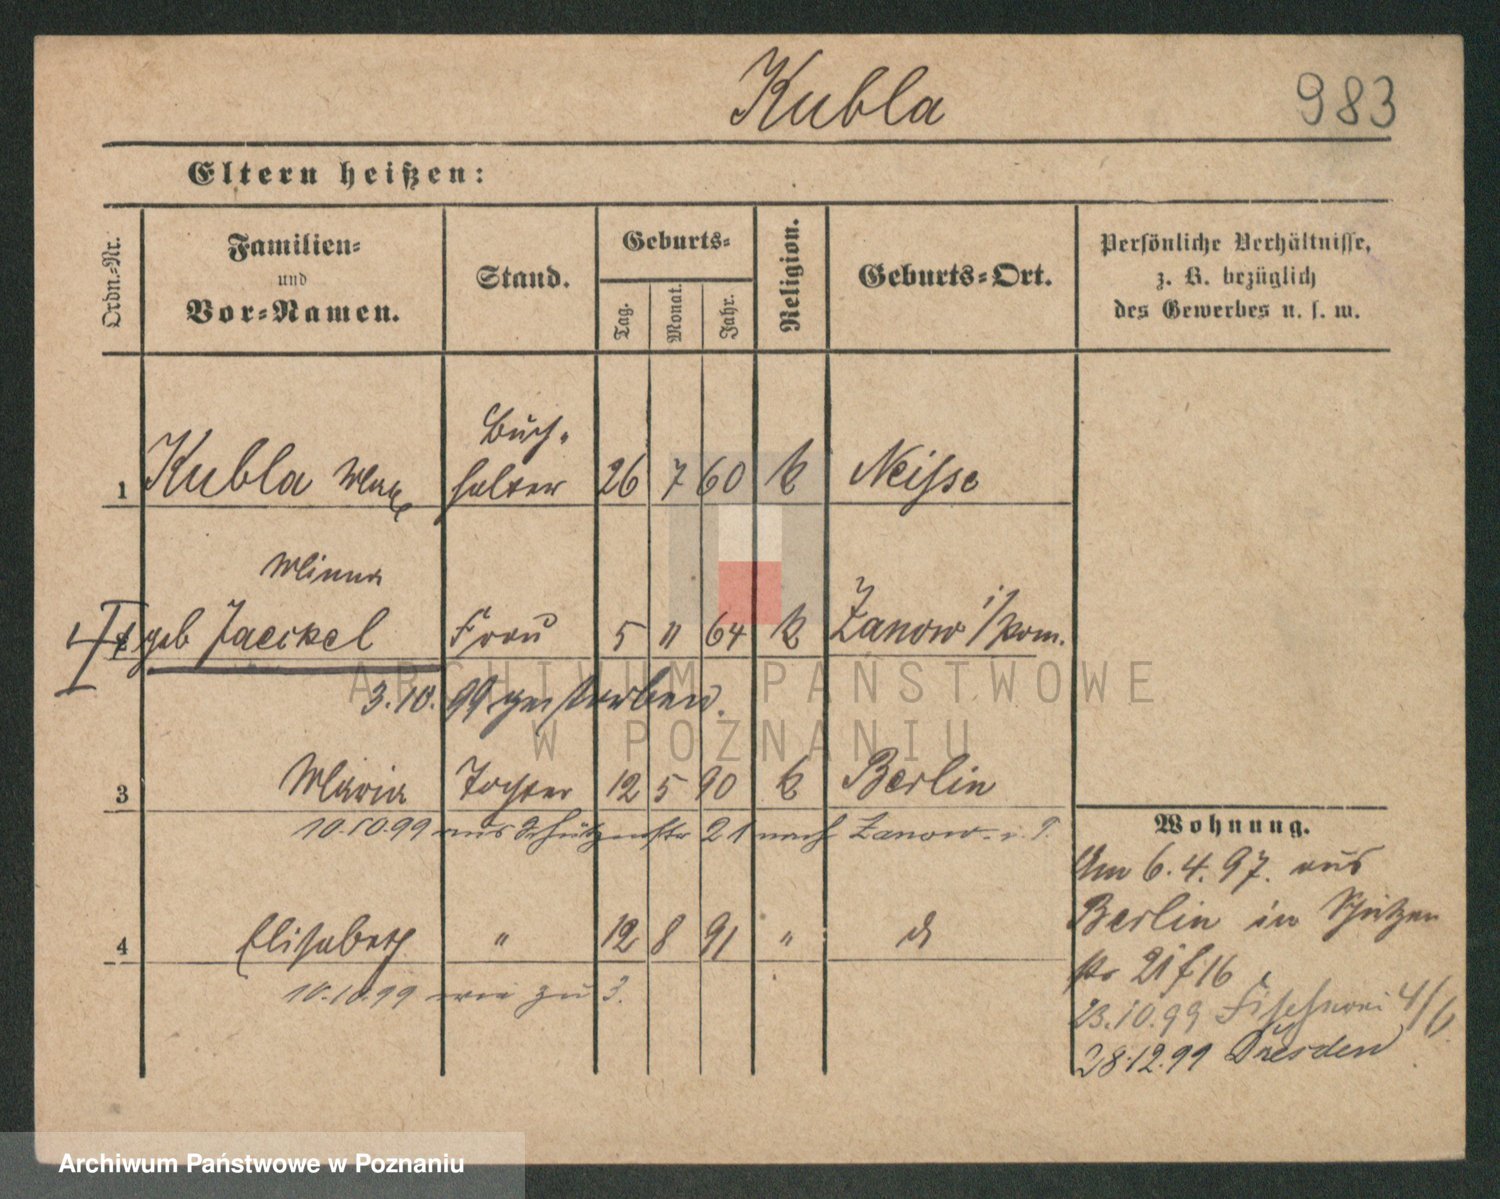 Kubla
983
Eltern heißen:
Ordn.-Nr.
Familien-
und
Vor-Namen.
Stand.
Geburts-
Tag.
Monat.
Jahr.
Religion.
Geburts-Ort.
Persönliche Verhältnisse,
z. B. bezüglich
des Gewerbes u. s. w.
Buch-
1 Kubla Max halter 26 7 60 k Neisse
Minna
2 geb Jaeckel Frau 5 11 64 k Zanow i/Pom.
3.10.99 gestorben.
3 Maria Tochter 12 5 90 k Berlin
10.10.99 aus Schützenstr 21 nach Zanow i. P.
4 Elisabeth " 12 8 91 "
10.10.99 wie zu 3.
Wohnung.
Am 6.4.97. aus
Berlin in Schützen
str 21 f. 16
23.10.99 Fischerei 4/6
28.12.99 Dresden
ARCHIWUM PAŃSTWOWE
W POZNANIU
Archiwum Państwowe w Poznaniu